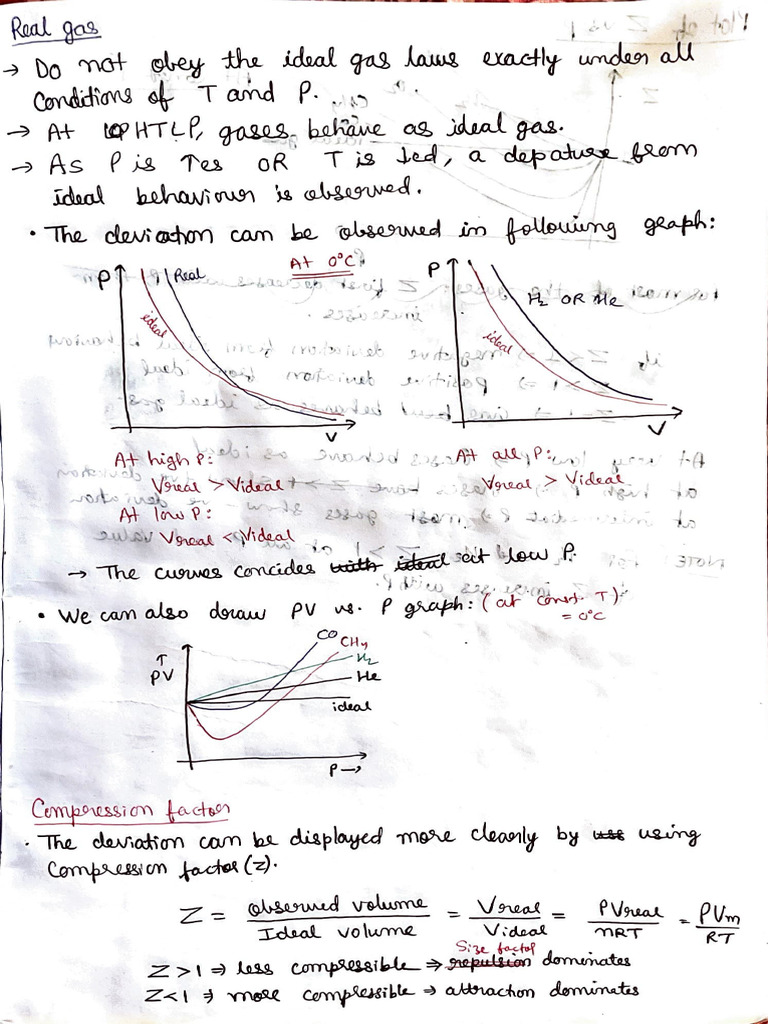 Real gas
→ Do not obey the ideal gas laws exactly under all
conditions of T and P.
→ At HTLP, gases behave as ideal gas.
→ As P is ↑es OR T is ↓ed, a depature from
ideal behaviour is observed.
• The deviation can be observed in following graph:
P Real At 0°C P H₂ OR He
ideal ideal
V V
At high P: At all P:
Vreal > Videal Vreal > Videal
At low P:
Vreal < Videal
→ The curves concides with ideal at low P.
• We can also draw PV vs. P graph: (at const. T)
= 0°C
CO CH₄
↑ H₂
PV He
ideal
P→
Compression factor
• The deviation can be displayed more clearly by using
Compression factor (Z).
Z = Observed volume / Ideal volume = Vreal / Videal = PVreal / nRT = PVm / RT
Size factor
Z > 1 ⇒ less compressible ⇒ repulsion dominates
Z < 1 ⇒ more compressible ⇒ attraction dominates